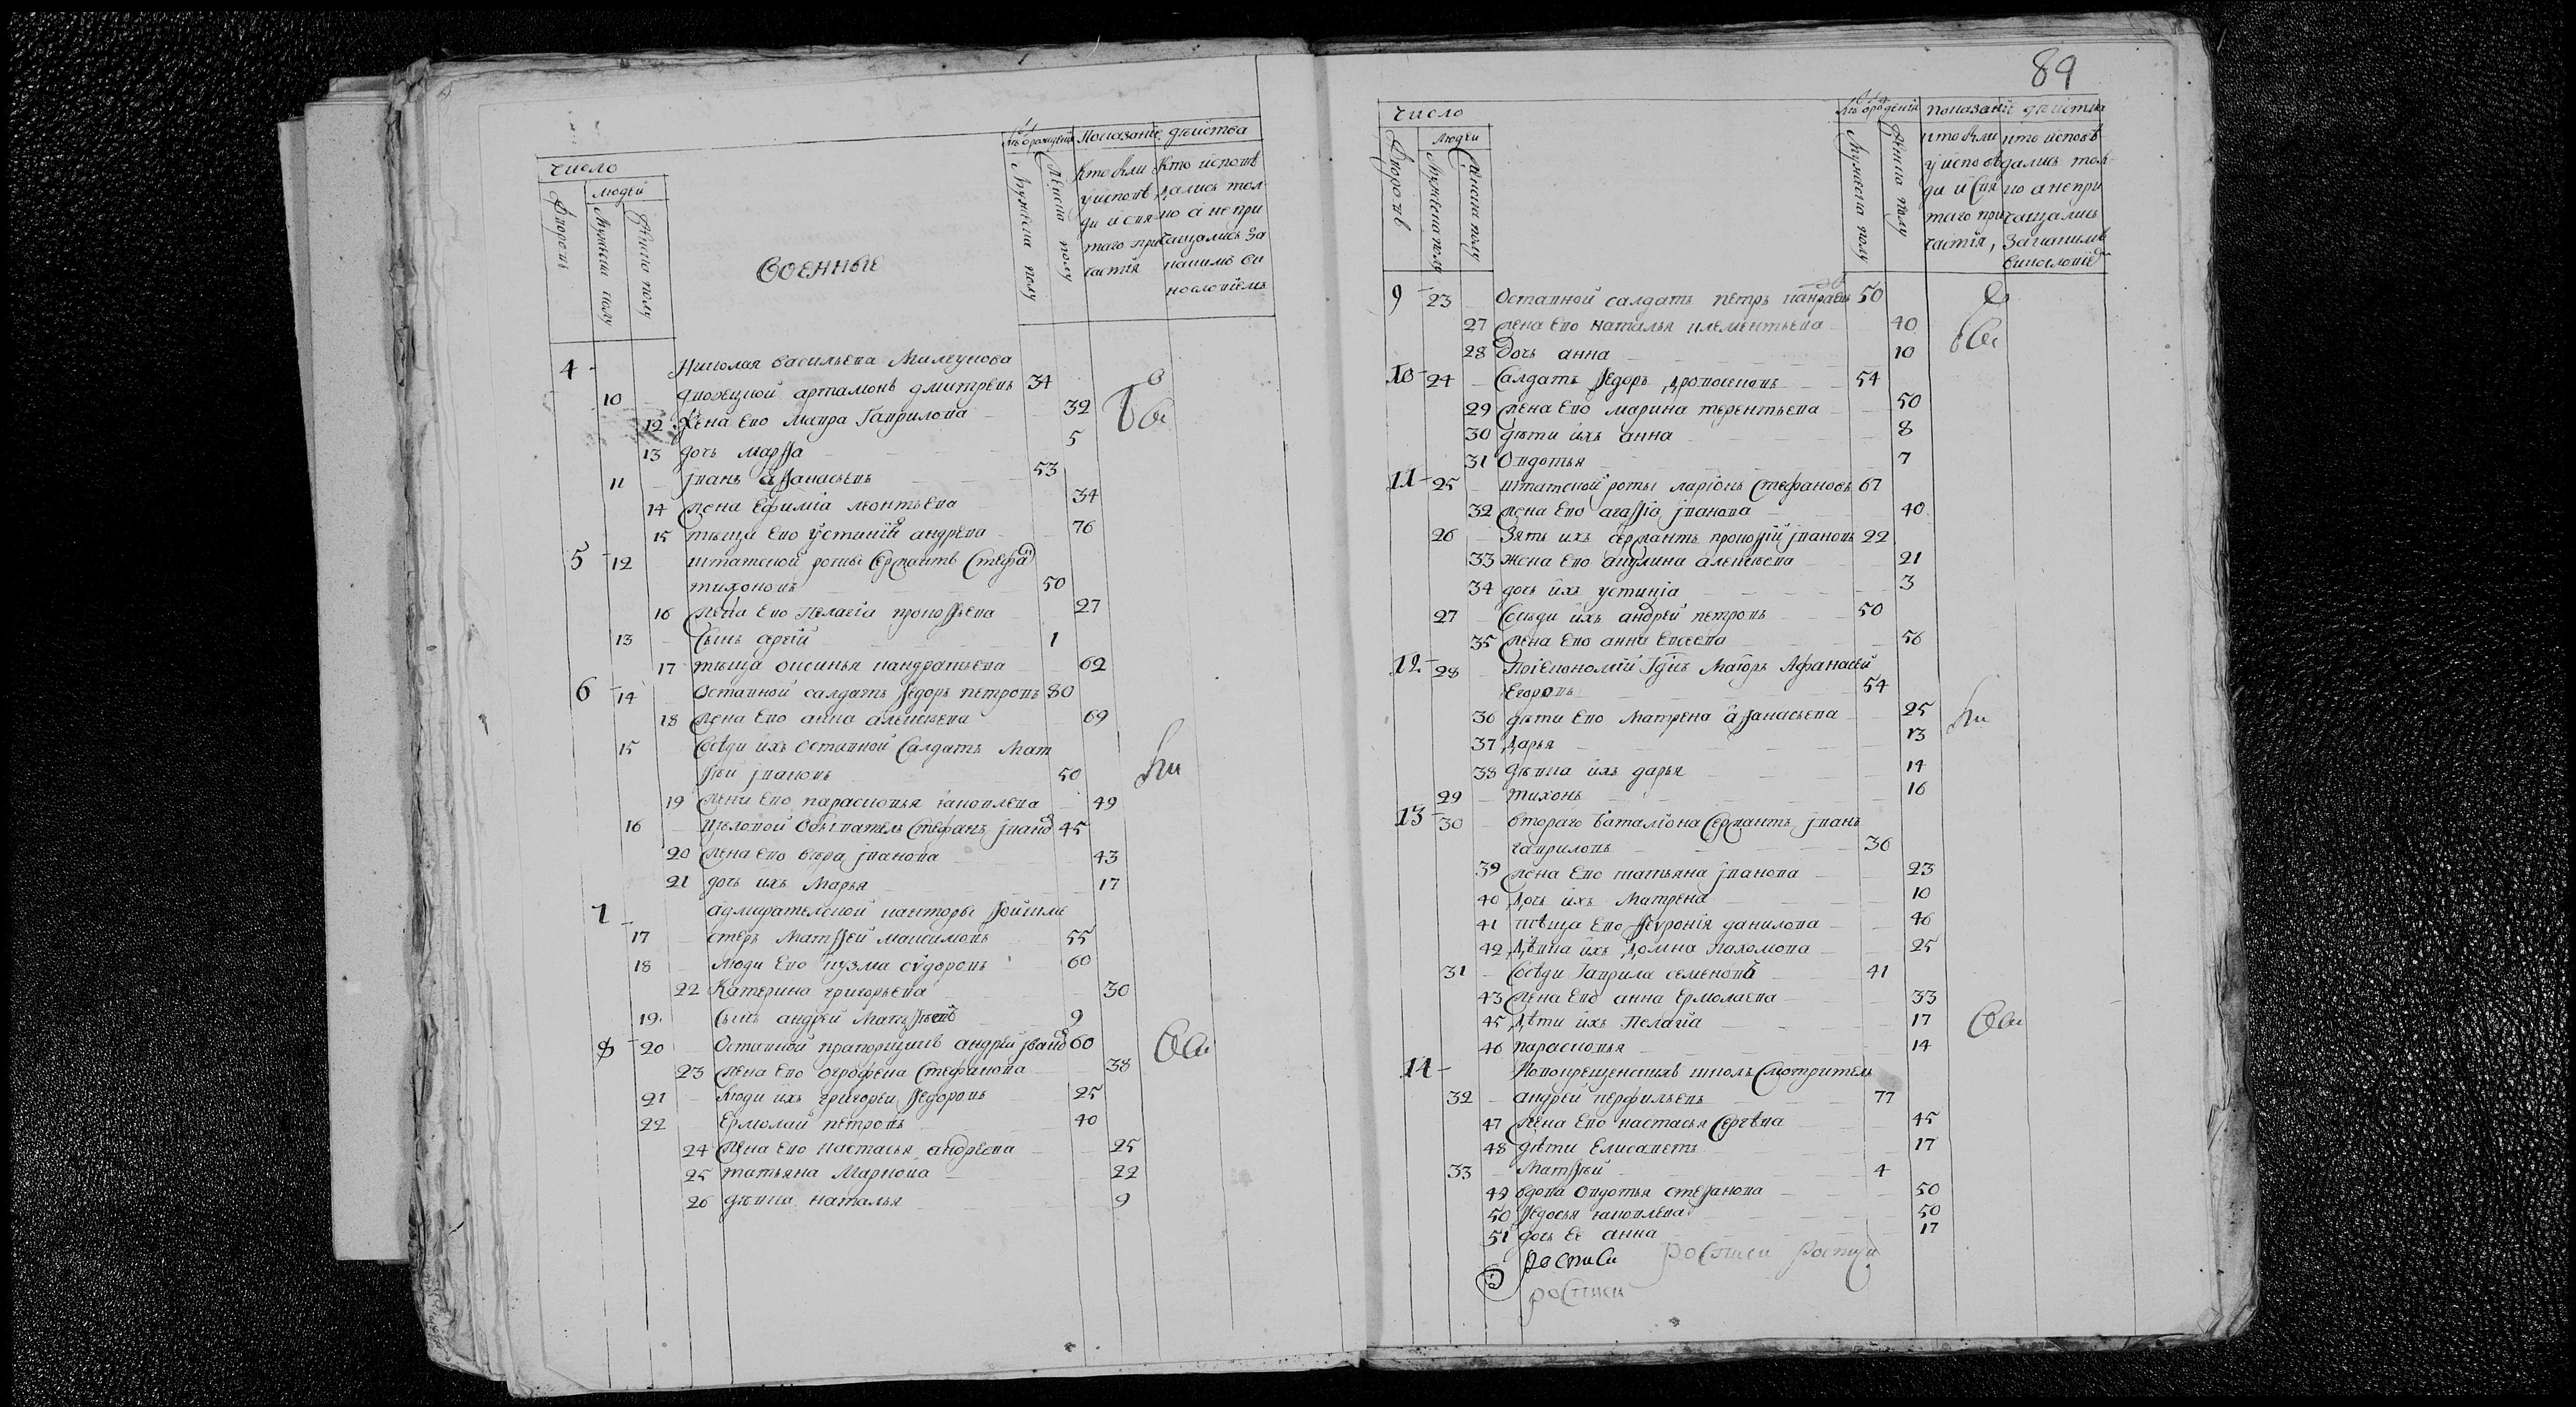 число
людей
Дворовъ
Мужеска полу
Женска полу
Военные
лѣ отрождения
Мужеска полу
Женска полу
Показание действа
Кто были
у испове
ди и свя
таго при
частия
Кто испове
дались тол
ко а не при
чащались за
каким ви
нословиемъ
4 Николая васильева Милеунова
10 дворецкой артамонъ дмитревъ 34
12 Жена ево Мавра Гаврилова 32
13 дочь Марѳа 5
11 Іванъ аѳанасьевъ 53
14 жена ефимиа леонтьева 34
15 теща ево устиния андрева 76
5 12 штатской роты сержантъ Стефанъ
тихоновъ 50
16 жена ево пелагиа прокоѳьева 27
13 сынъ сергий 1
17 теща оксинья кандратьева 62
6 14 Оставной салдатъ ѳедоръ петровъ 80
18 жена ево анна алексеева 69
15 Соседи ихъ оставной Салдатъ Мат
ѳей Івановъ 50
19 жена ево парасковья яковлева 49
16 Целовой Обыватель Стефанъ Іванов 45
20 жена ево вера Іванова 43
21 дочь ихъ Марья 17
7 адмиралтейской канторы
17 стеръ Матѳей максимовъ 55
18 люди ево кузма сидоровъ 60
22 Катерина григорьева 30
19 сынъ андрей Матѳеевъ 9
8 20 Оставной прапорщикъ андрей Іванов 60
23 жена ево огрофена Стефанова 38
21 люди ихъ григореи ѳедоровъ 25
22 Ермолай петровъ 40
24 жена ево настасья андреева 25
25 татьяна Маркова 22
26 девка наталья 9
89
число
людей
Дворовъ
Мужеска полу
Женска полу
лѣ отрождения
Мужеска полу
Женска полу
показание действа
кто были
у испове
ди и свя
таго при
частия,
кто испове
дались тол
ко а непри
чащались
за каким
винословием
9 23 Оставной салдатъ петръ 50
27 жена ево наталья клементьева 40
28 дочь анна 10
10 24 Салдатъ ѳедоръ 54
29 жена ево марина терентьева 50
30 дети ихъ анна 8
31 Овдотья 7
11 25 штатской роты ларионъ Стефановъ 67
32 жена ево агаѳиа Іванова 40
26 Зять ихъ сержантъ прокоѳий Івановъ 22
33 жена ево акулина алексеева 21
34 дочь ихъ устиниа 3
27 Соседи ихъ андрей петровъ 50
35 жена ево анна евсеева 56
12 28 Маиоръ Афанасей
Егоровъ 54
36 дети ево Матрена аѳанасьева 25
37 Дарья 13
38 девка ихъ дарья 14
29 тихонъ 16
13 30 втораго баталиона Сержантъ Іванъ
гавриловъ 36
39 жена ево татьяна Іванова 23
40 Дочь ихъ Матрена 10
41 теща ево ѳеврониа данилова 46
42 Девка ихъ Домна пахомова 25
31 Соседи Гаврила семеновъ 41
43 жена ево анна Ермолаева 33
45 Дети ихъ Пелагиа 17
46 парасковья 14
14 Новокрещенскихъ школъ Смотритель
32 андрей перфильевъ 77
47 жена ево настасья Сергева 45
48 дети Елисаветъ 17
33 Матѳей 4
49 вдова Овдотья стеѳанова 50
50 ѳедосья яковлева 50
51 дочь ее анна 17
росписи росписи роспи
росписи